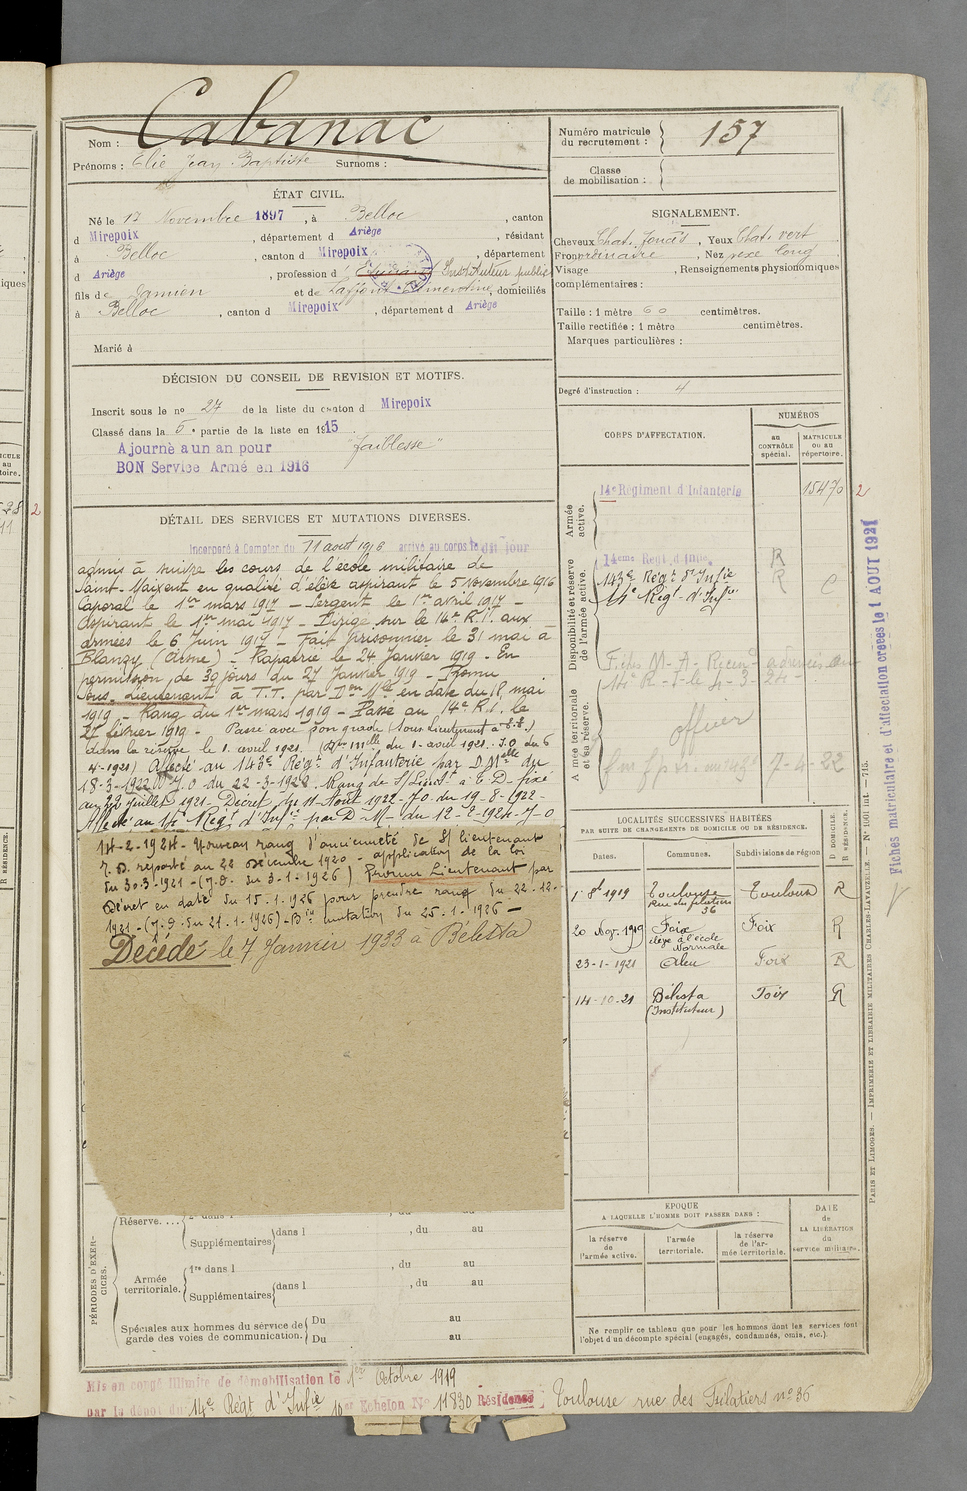 Nom : Cabanac
Prénoms : Elie Jean Baptiste Surnoms :
ÉTAT CIVIL.
Né le 17 Novembre 1897, à Belloc, canton
d Mirepoix, département d Ariège, résidant
à Belloc, canton d Mirepoix, département
d Ariège, profession d Instituteur public
fils de Damien et de Laffont Clémentine, domiciliés
à Belloc, canton d Mirepoix, département d Ariège
Marié à
DÉCISION DU CONSEIL DE REVISION ET MOTIFS.
Inscrit sous le no 27 de la liste du canton d Mirepoix
Classé dans la 5e partie de la liste en 1915.
Ajourné a un an pour "faiblesse"
BON Service Armé en 1916
DÉTAIL DES SERVICES ET MUTATIONS DIVERSES.
Incorporé à Compter du 11 août 1916 arrivé au corps le dit jour
admis à suivre les cours de l'école militaire de
Saint-Maixent en qualité d'élève aspirant le 5 novembre 1916
Caporal le 1er mars 1917 – Sergent le 1er avril 1917 –
Aspirant le 1er mai 1917 – Dirigé sur le 14e R.I. aux
armées le 6 Juin 1917 – Fait prisonnier le 31 mai à
Blanzy (Aisne) – Rapatrié le 24 Janvier 1919 – En
permission de 30 jours du 27 Janvier 1919 – Promu
Sous-Lieutenant à T.T. par Don Mlle en date du 18 mai
1919 – Rang du 1er mars 1919 – Passé au 14e R.I. le
27 février 1919 – Passé avec son grade (Sous Lieutenant à T.T.)
dans la réserve le 1. avril 1921. (Don Mlle du 1. avril 1921. J.O du 6
4-1921) Affecté au 143e Régt d'Infanterie par D. Mlle du
18-3-1922 J.O du 22-3-1922. Rang de S/Lieut à T.D fixé
au 22 juillet 1921. Décret du 11 Août 1922 – J.O du 19-8-1922 –
Affecté au 14e Régt d'Infie par D-M- du 12-2-1924-J-O
14-2-1924- Nouveau rang d'ancienneté de S/ lieutenant
T.D. reporté au 22 Décembre 1920 – application de la loi
du 30.3-1921 (J.O. du 3-1-1926) Promu Lieutenant par
Décret en date du 15-1-1926 pour prendre rang du 22-12-
1921 – (J.O. du 21-1-1926) – Bin mutation du 25-1-1926 –
Décédé le 7 Janvier 1933 à Bélesta
PÉRIODES D'EXERCICES.
Réserve.... Supplémentaires dans l , du au
Armée territoriale. 1re dans l , du au
Supplémentaires dans l , du au
Spéciales aux hommes du service de Du au
garde des voies de communication. Du au
Mis en congé illimité de démobilisation le 1er Octobre 1919
par le dépôt du 14e Régt d'Infie 10e Echelon No 11830 Résidence Toulouse rue des Filatiers no 36
Numéro matricule
du recrutement : 157
Classe
de mobilisation :
SIGNALEMENT.
Cheveux Chat. foncés, Yeux Chat. vert
Front ordinaire, Nez vexe long
Visage , Renseignements physionomiques
complémentaires :
Taille : 1 mètre 60 centimètres.
Taille rectifiée : 1 mètre centimètres.
Marques particulières :
Degré d'instruction : 4
CORPS D'AFFECTATION.
NUMÉROS
au CONTRÔLE spécial.
MATRICULE ou au répertoire.
Armée active.
14e Régiment d'Infanterie 15470 2
Disponibilité et réserve de l'armée active.
14eme Regt d'Infie R
143e Régt d'Infie R C
14e Régt d'Infie
14e R-I-le 4-3-24-
Armée territoriale et sa réserve.
officier
7-4-22
LOCALITÉS SUCCESSIVES HABITÉES
PAR SUITE DE CHANGEMENTS DE DOMICILE OU DE RÉSIDENCE.
Dates. Communes. Subdivisions de région D DOMICILE. R RÉSIDENCE.
1er 8bre 1919 Toulouse Toulouse R
Rue des filatiers
36
20 Nov. 1919 Foix Foix R
élève à l'école
Normale
23-1-1921 Aleu Foix R
14-10-21 Bélesta Foix R
(Instituteur)
EPOQUE
A LAQUELLE L'HOMME DOIT PASSER DANS :
la réserve de l'armée active.
l'armée territoriale.
la réserve de l'armée territoriale.
DATE de LA LIBÉRATION du service militaire.
Ne remplir ce tableau que pour les hommes dont les services font
l'objet d'un décompte spécial (engagés, condamnés, omis, etc.)
PARIS ET LIMOGES. — IMPRIMERIE ET LIBRAIRIE MILITAIRES CHARLES-LAVAUZELLE. — No 1601 int. — 715.
Fiches matriculaire et d'affectation créées le 1 AOUT 1921